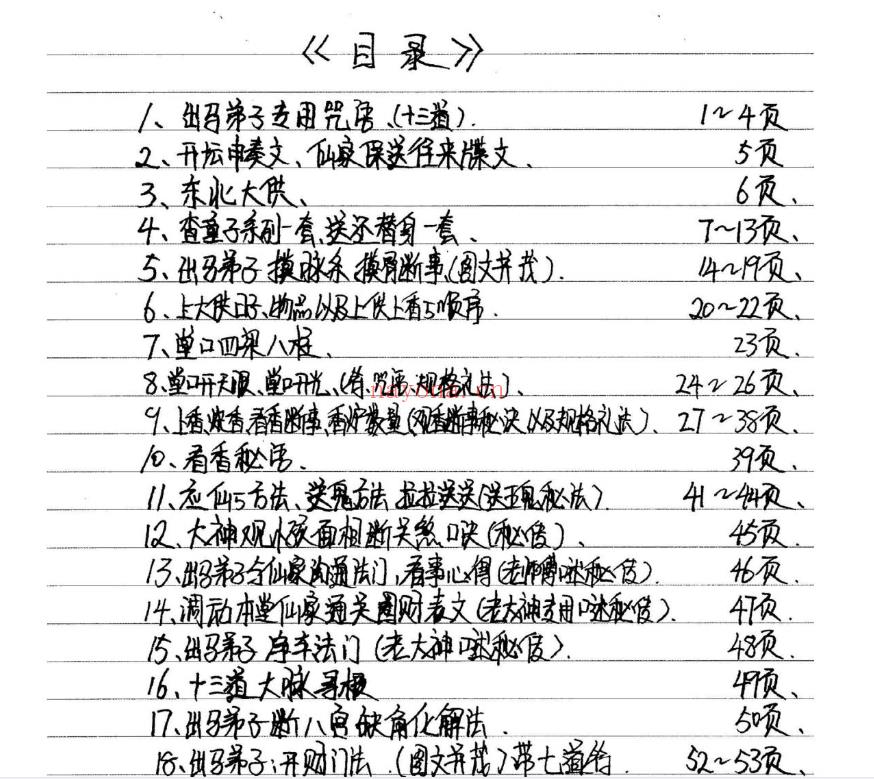 《目录》
1、出马弟子专用咒语、(十三道). 1~4页
2、开坛申奏文、仙家保送往来牒文、 5页
3、东北大供、 6页、
4、查童子系列一套、送还替身一套、 7~13页、
5、出马弟子摸脉系、摸骨断事、(图文并茂). 14~19页、
6、上大供日子、物品以及上供上香与顺序. 20~22页、
7、堂口四梁八柱、 23页、
8、堂口开天眼、堂口开光、(符.咒语.规格礼法)、 24~26页、
9、上香炊香、看香断事、香炉数量(观香断事秘诀以及规格礼法)、 27~38页、
10、看香秘语、 39页、
11、应仙与方法、送鬼方法、拉拉送送(送五鬼秘法)、 41~44页、
12、大神观水碗面相断关煞口诀(秘传)、 45页
13、出马弟子与仙家沟通法门,看事心得(老师傅口述秘传)、 46页、
14、调动本堂仙家通关圆财表文(老大神专用口述秘传)、 47页
15、出马弟子净车法门(老大神口述秘传)、 48页.
16、十三道大脉寻根 49页、
17、出马弟子断八宫缺角化解法. 50页、
18、出马弟子:开财门法.(图文并茂)带七道符. 52~53页、